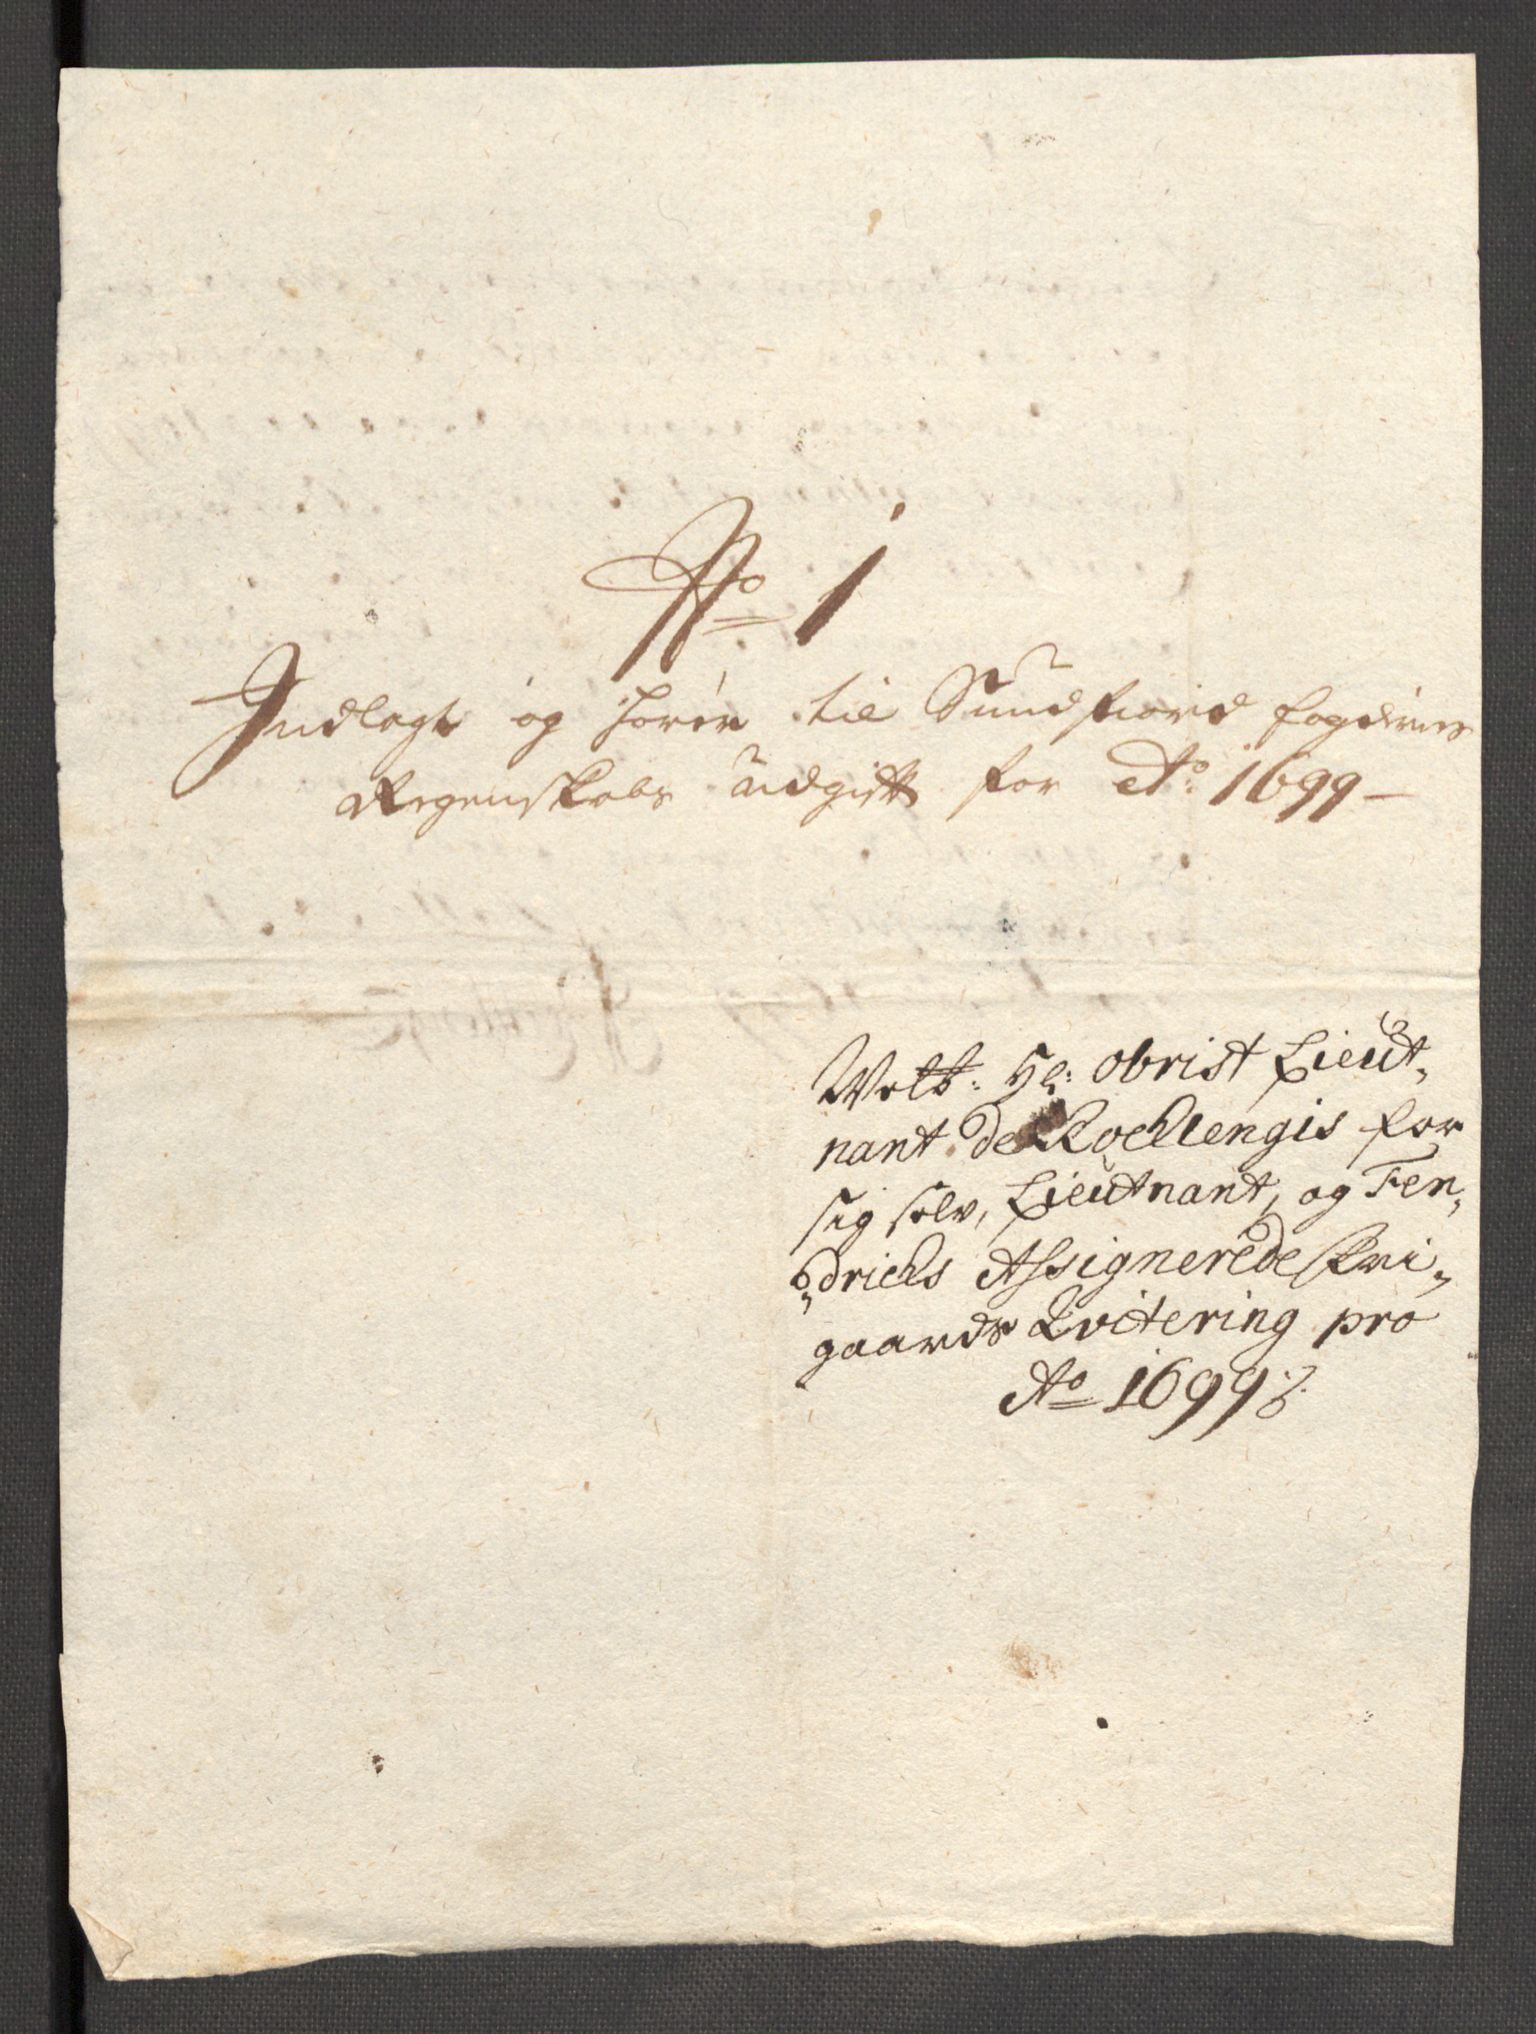 No 1
Indlagt og hører til Sundfiord fogderies
Regenskabs udgifft for Ao: 1699 –
Welb: Hr: Obrist Lieut,,
nant de Roclengis for
sig selv, Lieutnant, og Fen,,
,,dricks Assignerede
gaards Qvitering pro
Ao 1699 ./.